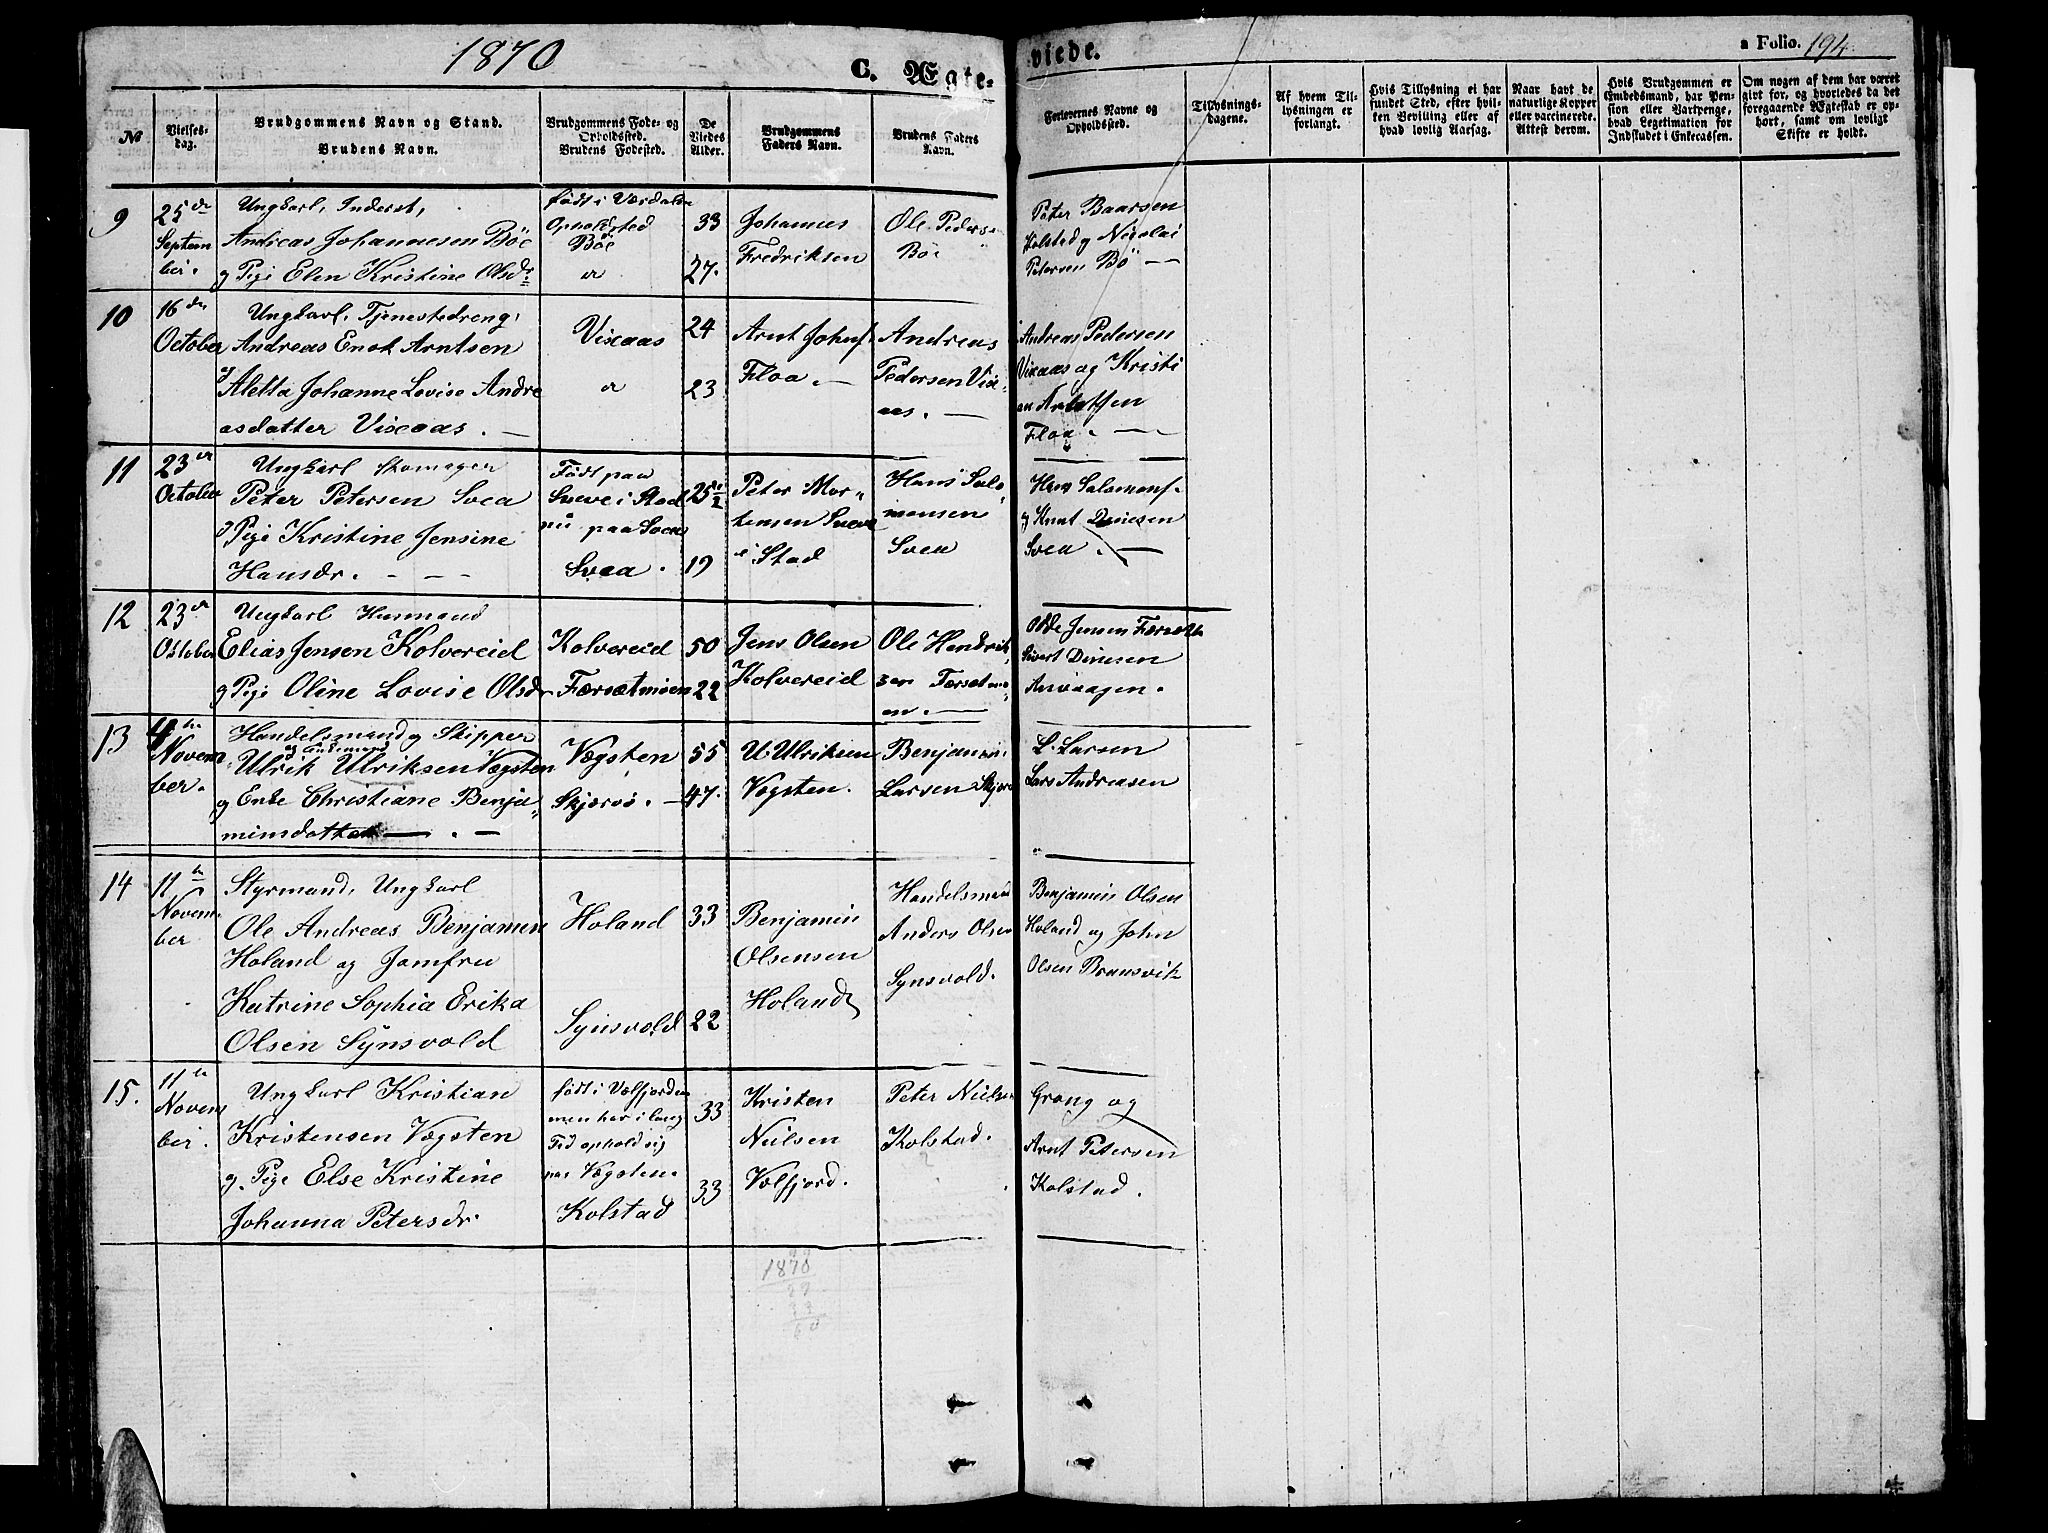 1870
C. Ægte-
viede.
a Folio. 194
No
Vielses-
dag.
Brudgommens Navn og Stand.
Brudens Navn.
Brudgommens Føde- og
Opholdssted.
Brudens Fødested.
De
Viedes
Alder.
Brudgommens
Faders Navn.
Brudens Faders
Navn.
Forlovernes Navne og
Opholdssted.
Tillysnings-
dagene.
Af hvem Til-
lysningen er
forlangt.
Hvis Tillysning ei har
fundet Sted, efter hvil-
ken Bevilling eller af
hvad lovlig Aarsag.
Naar havt de
naturlige Kopper
eller vaccinerede.
Attest derom.
Hvis Brudgommen er
Embedsmand, har Pen-
sion eller Vartpenge,
hvad Legitimation for
Indskudet i Enkecassen.
Om nogen af dem har været
gift før, og hvorledes da det
foregaaende Ægteskab er op-
hørt, samt om lovligt
Skifte er holdt.
9
25de
Septem
ber.
Ungkarl, Inderst,
Andreas Johannesen Böe
g Pige Elen Kristine Olsdr
født i Værdalen
Opholdsted
Böe
33
27.
Johannes
Fredriksen
Ole Peders
Böe
Peter Baarsen
Kolstad g Nicolai
Petersen Bö —
10
16de
October
Ungkarl, Tjenestedreng,
Andreas Enok Arntsen
g Aletta Johanne Lovise Andre
asdatter Viseaas. —
Viseaas
24
23
Arnt Johns
Floa. —
Andreas
Pedersen Vise
aas. —
Andreas Pedersen
Viseaas og Kristi
an Arntsen
Floa. —
11
23de
October
Ungkarl skomager
Peter Petersen Svea
g Pige Kristine Jensine
Hansdr. - — -
Født paa
Sveve i Stod
nu paa Svea
Svea.
25 1/2
19
Peter Mor-
tensen Sveve
i Stod
Hans Salo-
monsen
Svea
Hans Salomons.
g Knut Dinesen
Svea. —
12
23de
October
Ungkarl Husmand
Elias Jensen Kolvereid
g Pige Oline Lovise Olsdr
Kolvereid
Færsetmoen
50
22
Jens Olsen
Kolvereid
Ole Hendrik
sen Færsetmo
en. —
Odde Jensen Færseth
Sivert Dinesen
Anvaagen.
13
4de
Novem
ber.
Handelsmand g Skipper
og Enkemand
Ulrik Ulriksen Vægsten
og Enke Christiane Benja
minsdatter — . —
Vægsten
Skjærsö. —
55
47.
U. Ulriksen
Vægsten.
Benjamin
Larsen Skjærs
L. Larsen
Lars Andreasen
14
11te
Novem
ber
Styrmand, Ungkarl
Ole Andreas Benjamen
Holand og Jomfru
Katrine Sophia Erika
Olsen Synsvold
Holand
Synsvold
33
22
Benjamin
Olsensen
Holand
Handelsmand
Anders Olsen
Synsvold.
Benjamin Olsen
Holand og John
Olsen Bransvik
15.
11te
Novem
ber.
Ungkarl Kristian
Kristensen Vægsten
g. Pige Else Kristine
Johanna Petersdr
født i Vælfjorden
men har i lang
Tid ophold sig
paa Vægsten
Kolstad
33
33
Kristen
Neilsen
Vælfjord.
Peter Nielsen
Kolstad.
Grong og
Arnt Petersen
Kolstad.
1870